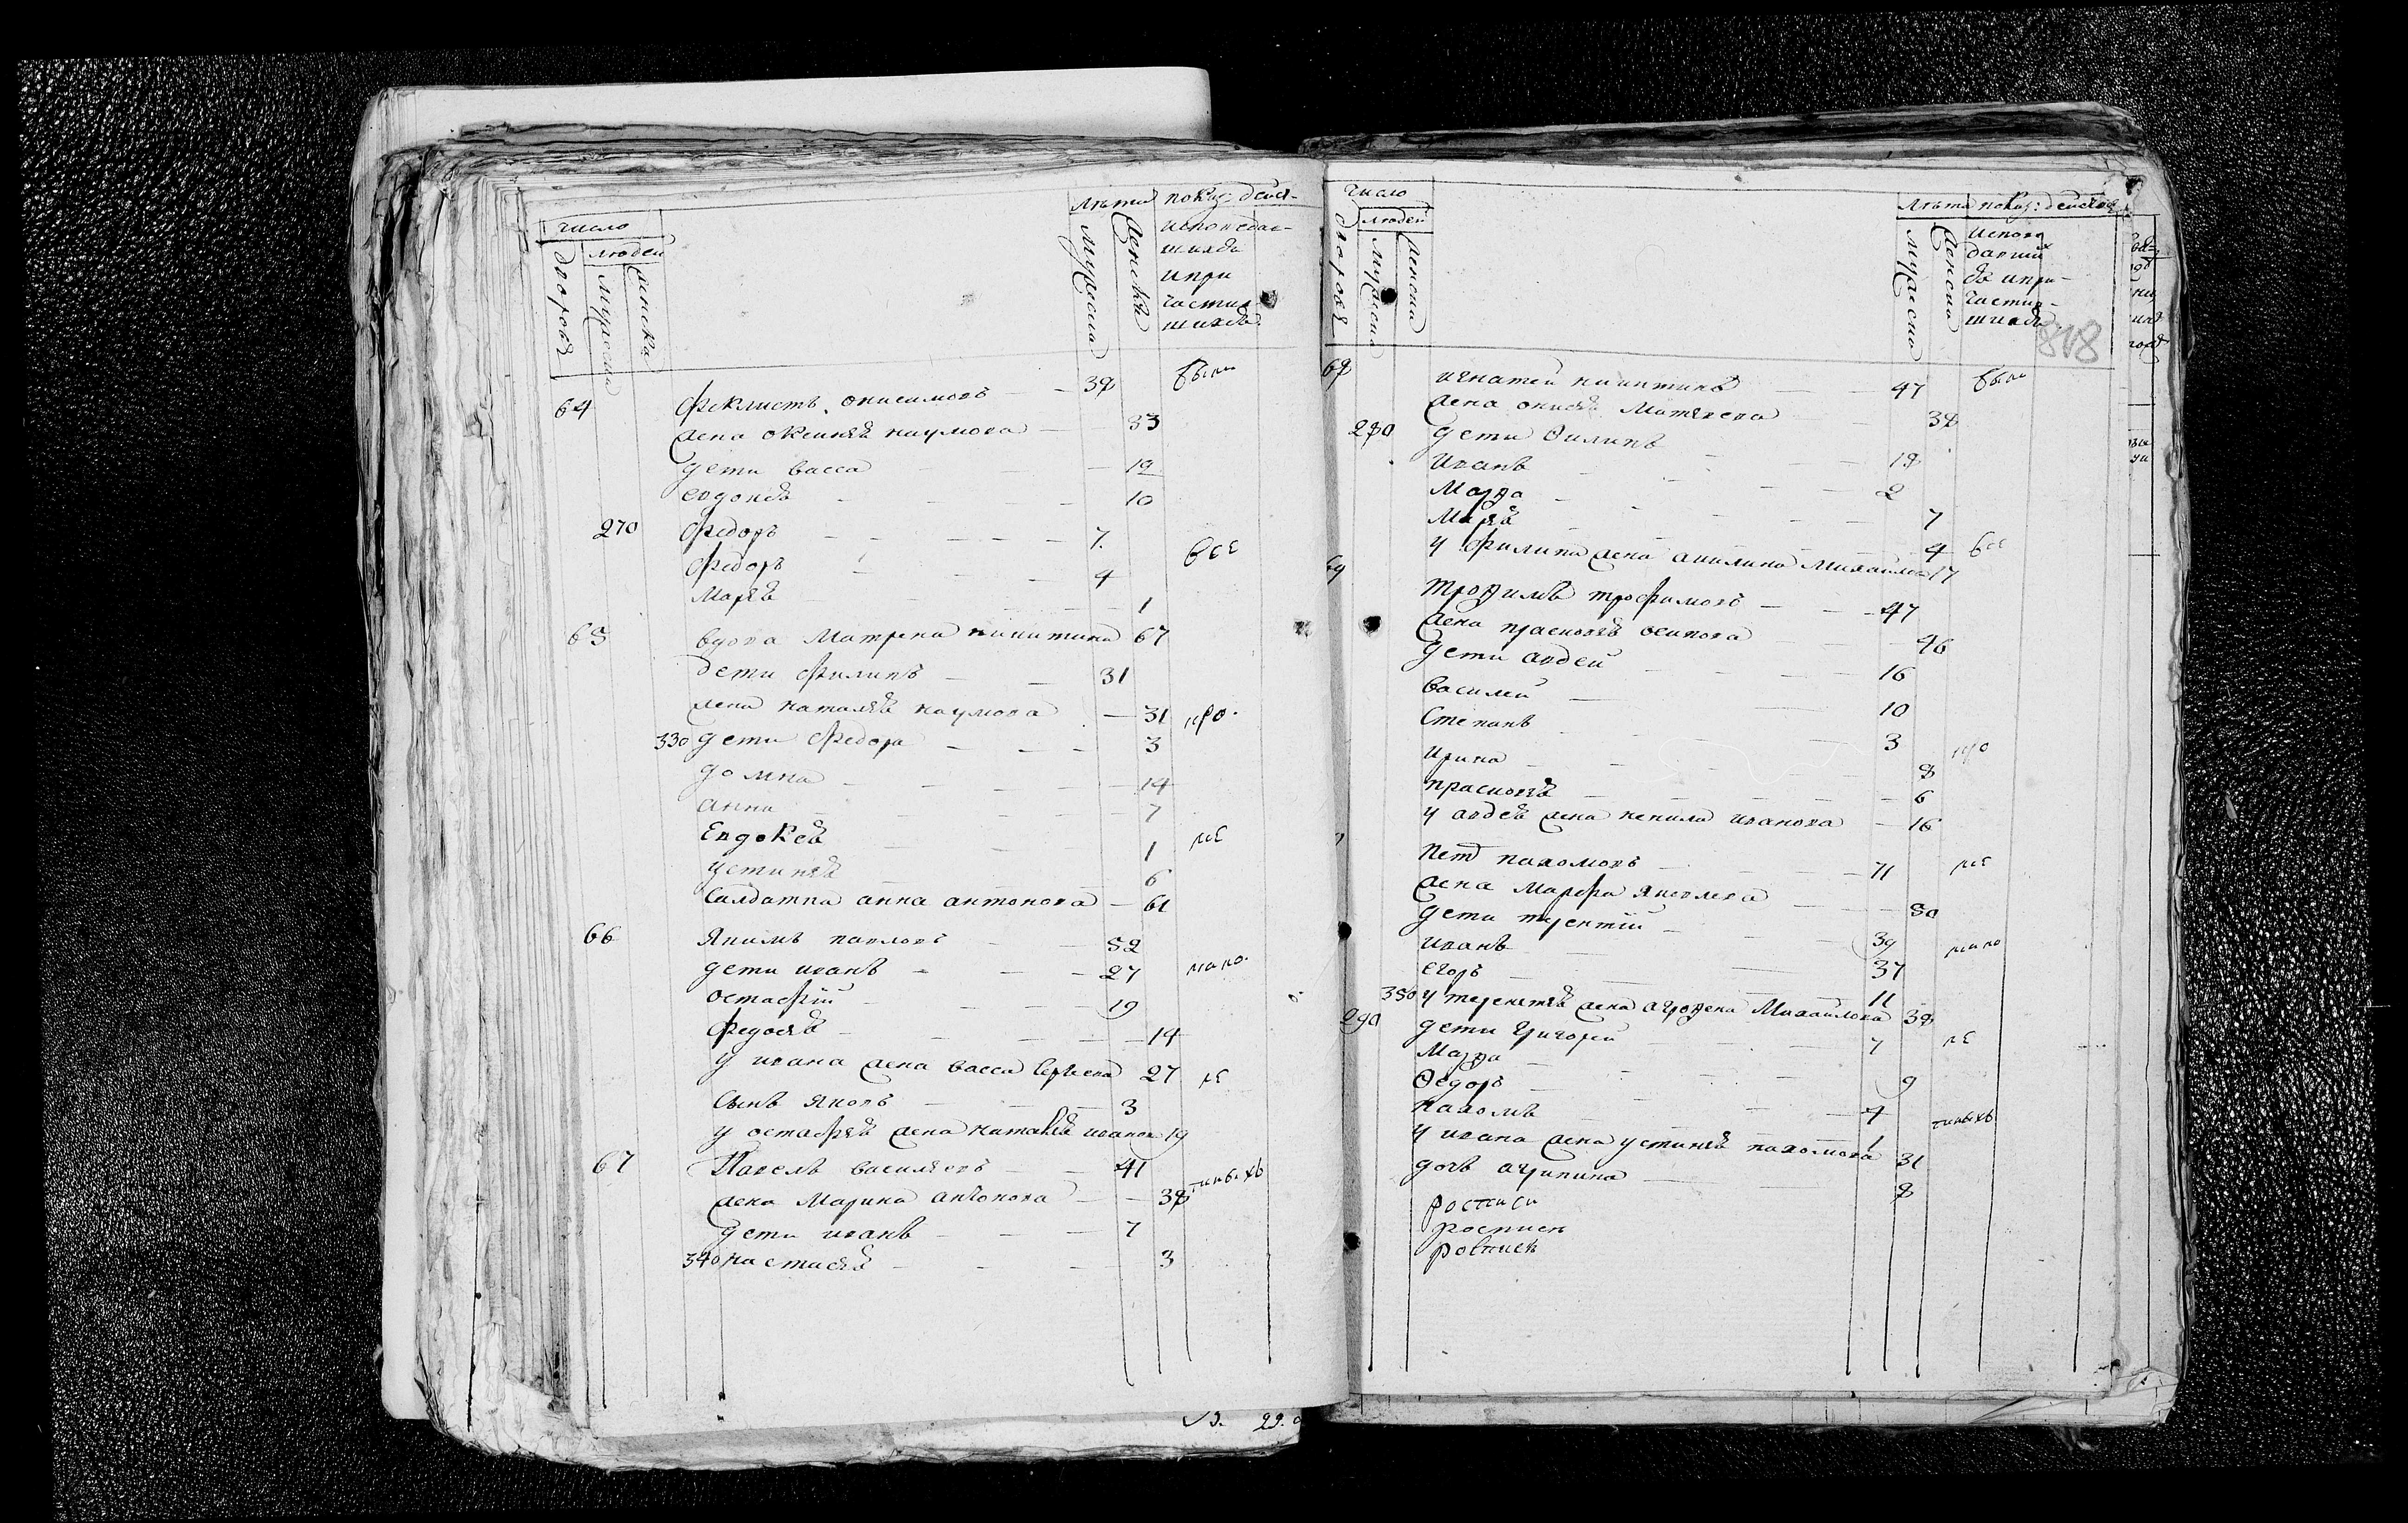 число
людей
дворовъ
мужеска
женска
лѣта
мужеска
женска
показ: дейст-
исповедав-
шихся
и при
частив
шихся
были
64 Феклистъ онисимовъ — 38
жена оксинья наумова — 33
дети васса — — 12
евдокѣя — — 10
270 Федоръ — — 7.
Федоръ — — 4
все
Марья — — 1
65 вдова Матрена никитина 67
дети Филипъ — — 31
жена наталья наумова — 31
испо.
330 дети Федора — — 3
домна — — 14
анна — — 7
Евдокея — — 1
не
устинья — — 6
Салдатка анна антонова — 61
66 Якимъ павловъ — — 52
дети иванъ — — 27
остафiй — — 19
федосья — — 14
у ивана жена васса Сергеева 27
Сынъ яковъ — — 3
у остафья жена наталья иванов 19
67 Павелъ васильевъ — — 41
жена Марина антонова — — 38
дети иванъ — — 7
340 настасья — — 3
число
людей
дворовъ
мужеска
женска
лѣта
мужеска
женска
показ: действа
испове
давших
ся и при-
частив-
шихся
818
были
68 игнатей никитинъ 47
жена онисья Матвеева 38
280 дети Филипъ — — 18
иванъ — — 2
Марѳа — — 7
Марья — — 4
все
у Филипа жена акилина Михайлов 17
69 троѳимъ трофимовъ — — 47
жена прасковья осипова — 46
дети авдей — — 16
василей — — 10
Степанъ — — 3
ирина — — 8
прасковья — — 6
у авдея жена ненила иванова — 16
Петръ пахомовъ — — 71
не
жена Марфа яковлева — — 50
дети терентiй — — 39
иванъ — — 37
егоръ — — 11
350 у терентья жена агроѳена Михайлова 38
290 дети григорей — — 7
Марѳа — — 9
Ѳедоръ — — 4
пахомъ — — 1
у ивана жена устинья пахомова 31
дочь агрипина — — 8
росписи
росписи
росписи